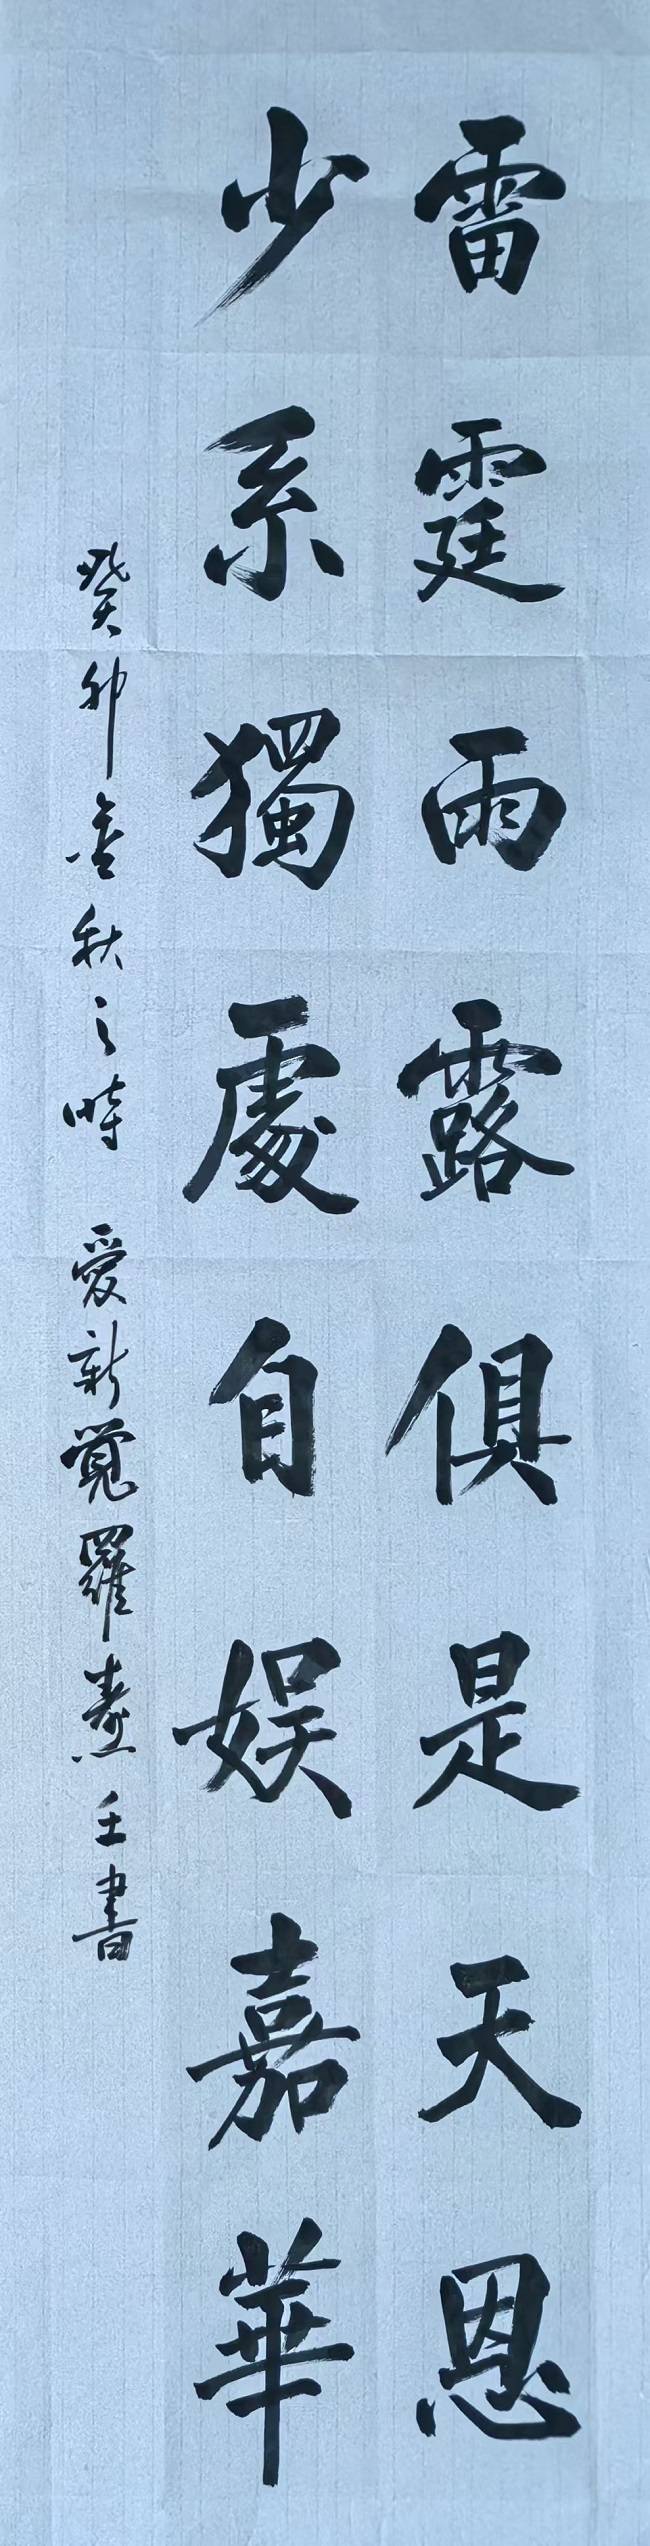 雷霆雨露俱是天恩
少系獨處自娛嘉華
癸卯金秋之時 愛新覺羅燾壬書